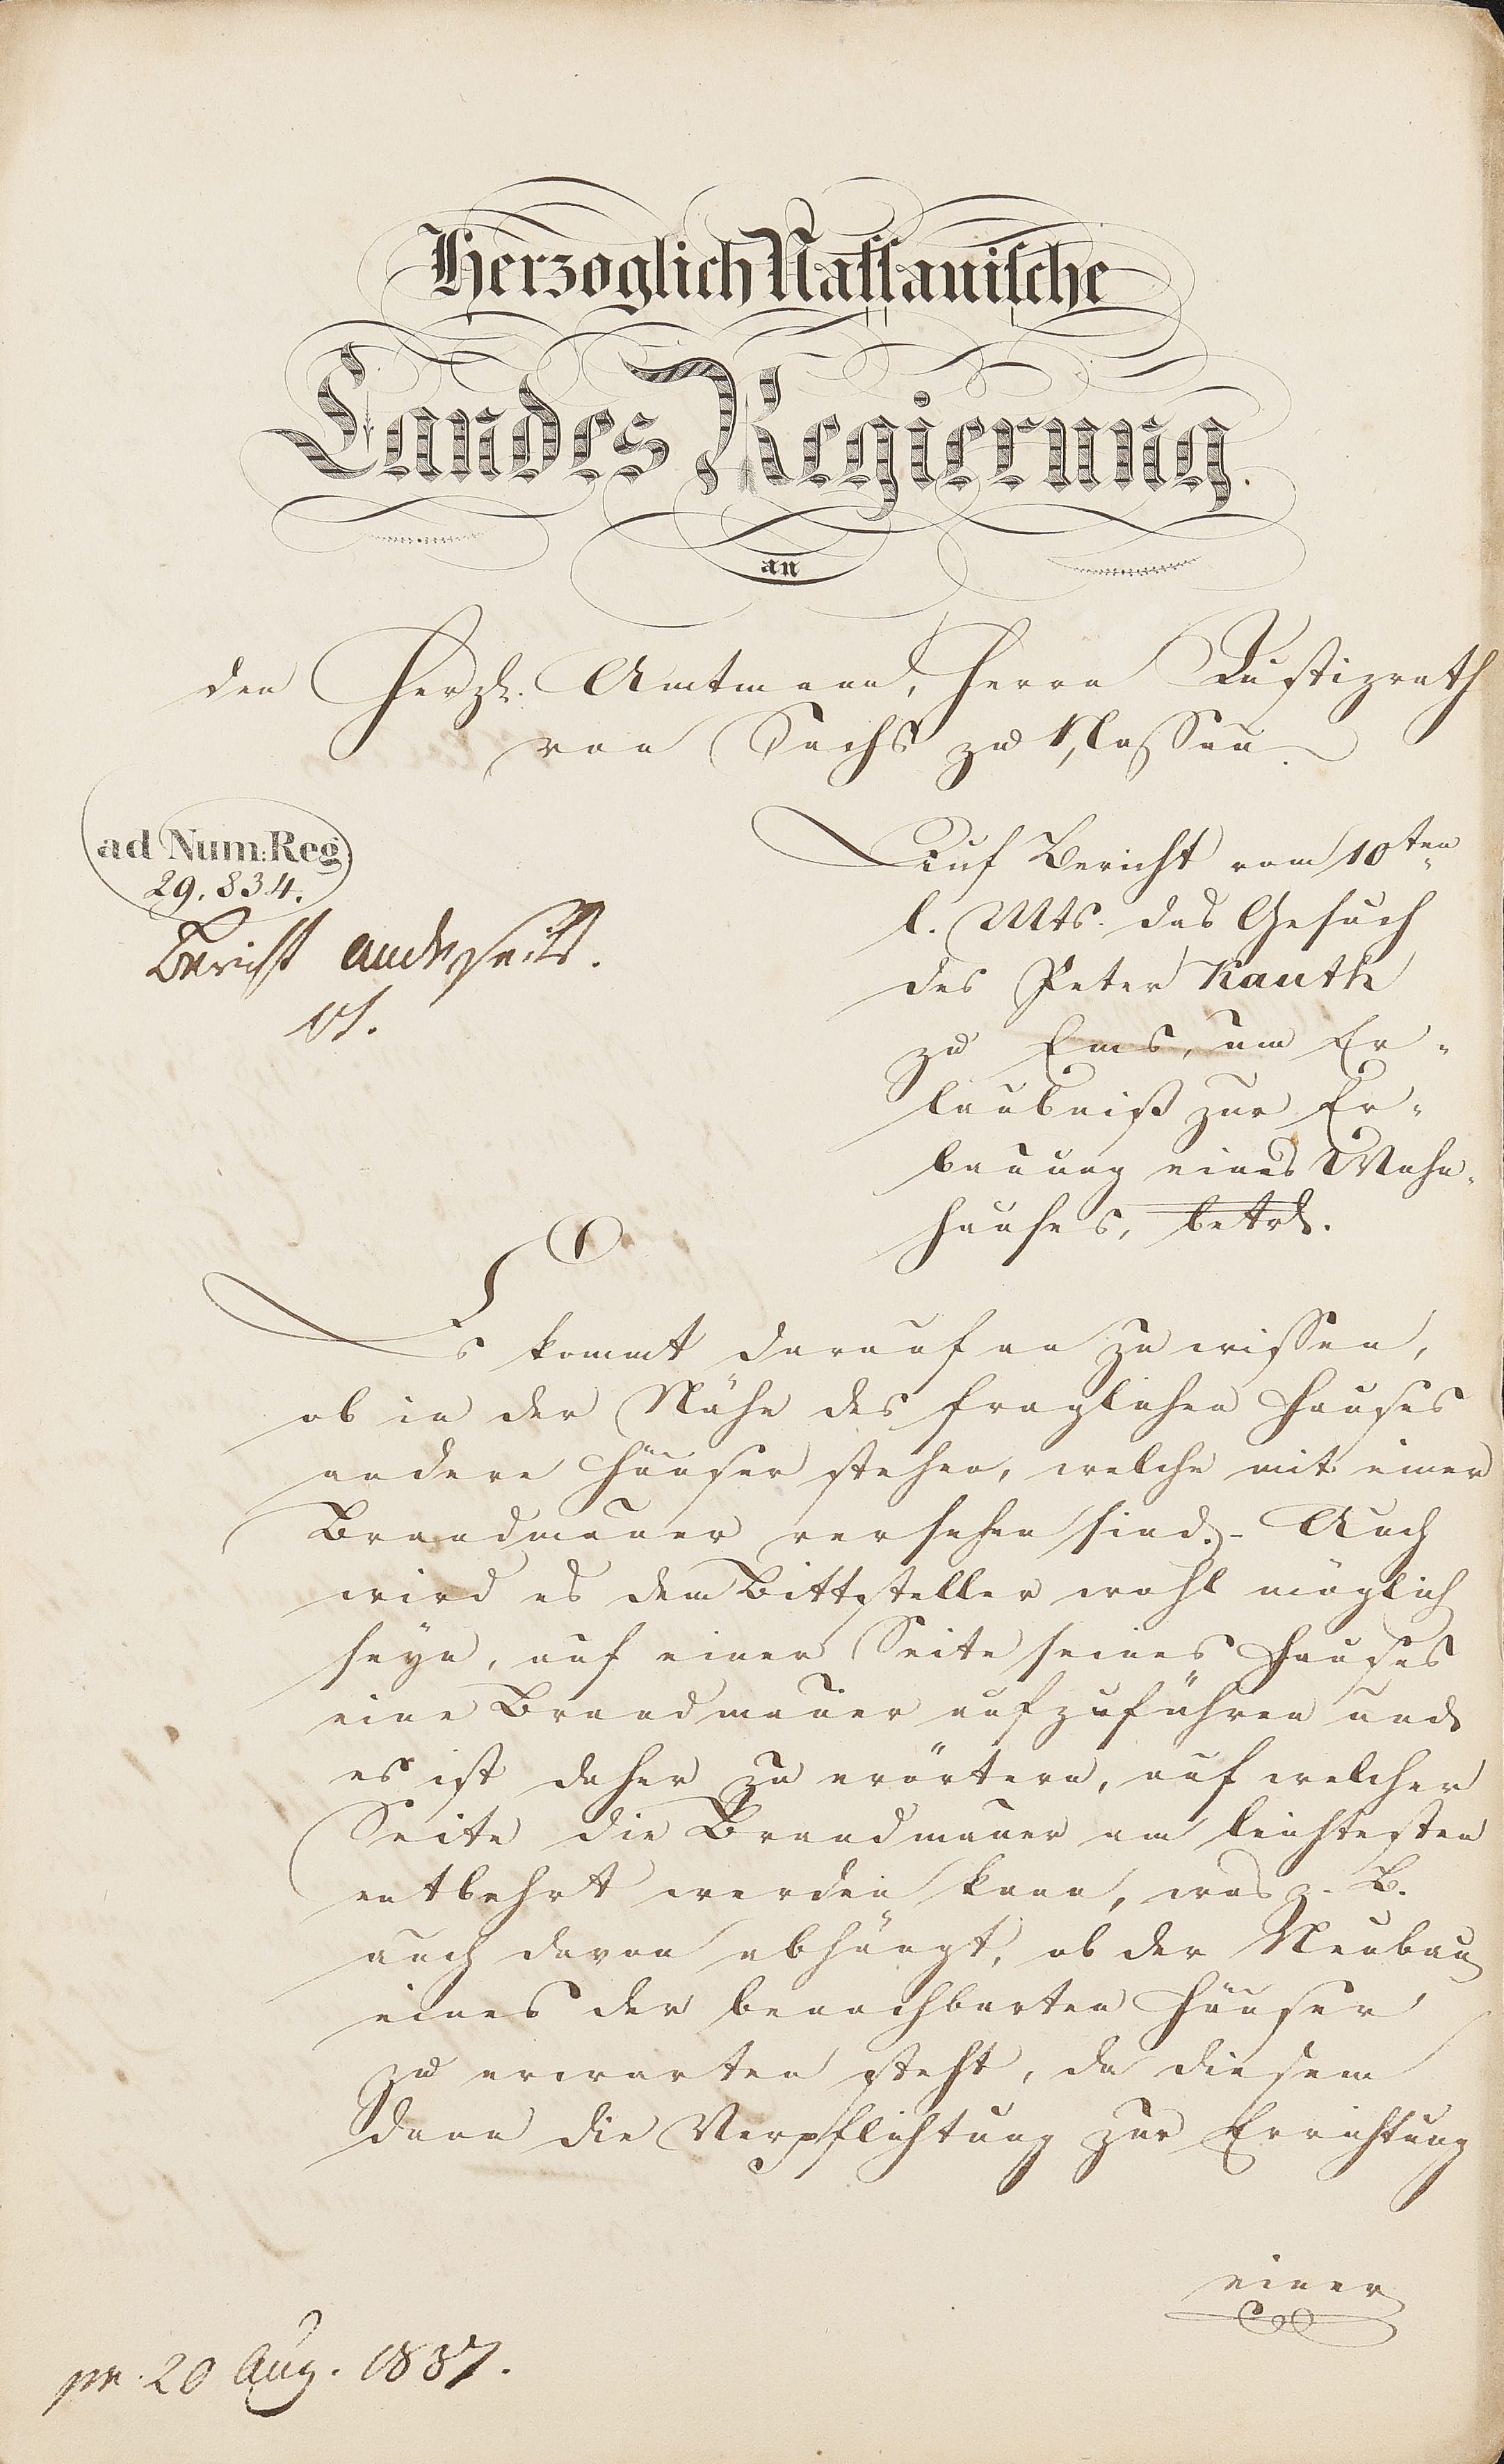 Herzoglich Nassauische
Landes Regierung.
an
den Herzl. Amtmann, Herrn Justizrath
von Sachs zu Nassau
ad Num: Reg
29.834.
Bericht anderseits.
Auf Bericht vom 10ten
l. Mts. das Gesuch
des Peter Kauth
zu Ems, um Er-
laubniß zur Er-
bauung eines Wohn-
hauses, betrd.
Es kommt darauf an zu wissen,
ob in der Nähe des fraglichen Hauses
andere Häuser stehen, welche mit einer
Brandmauer versehen sind. - Auch
wird es dem Bittsteller wohl möglich
seyn, auf einer Seite seines Hauses
eine Brandmauer aufzuführen und
es ist daher zu erörtern, auf welcher
Seite die Brandmauer am leichtesten
entbehrt werden kann, was z. B.
auch davon abhängt, ob der Neubau
eines der benachbarten Häuser
zu erwarten steht, da diesem
dann die Verpflichtung zur Errichtung
einer
pr. 20 Aug. 1837.